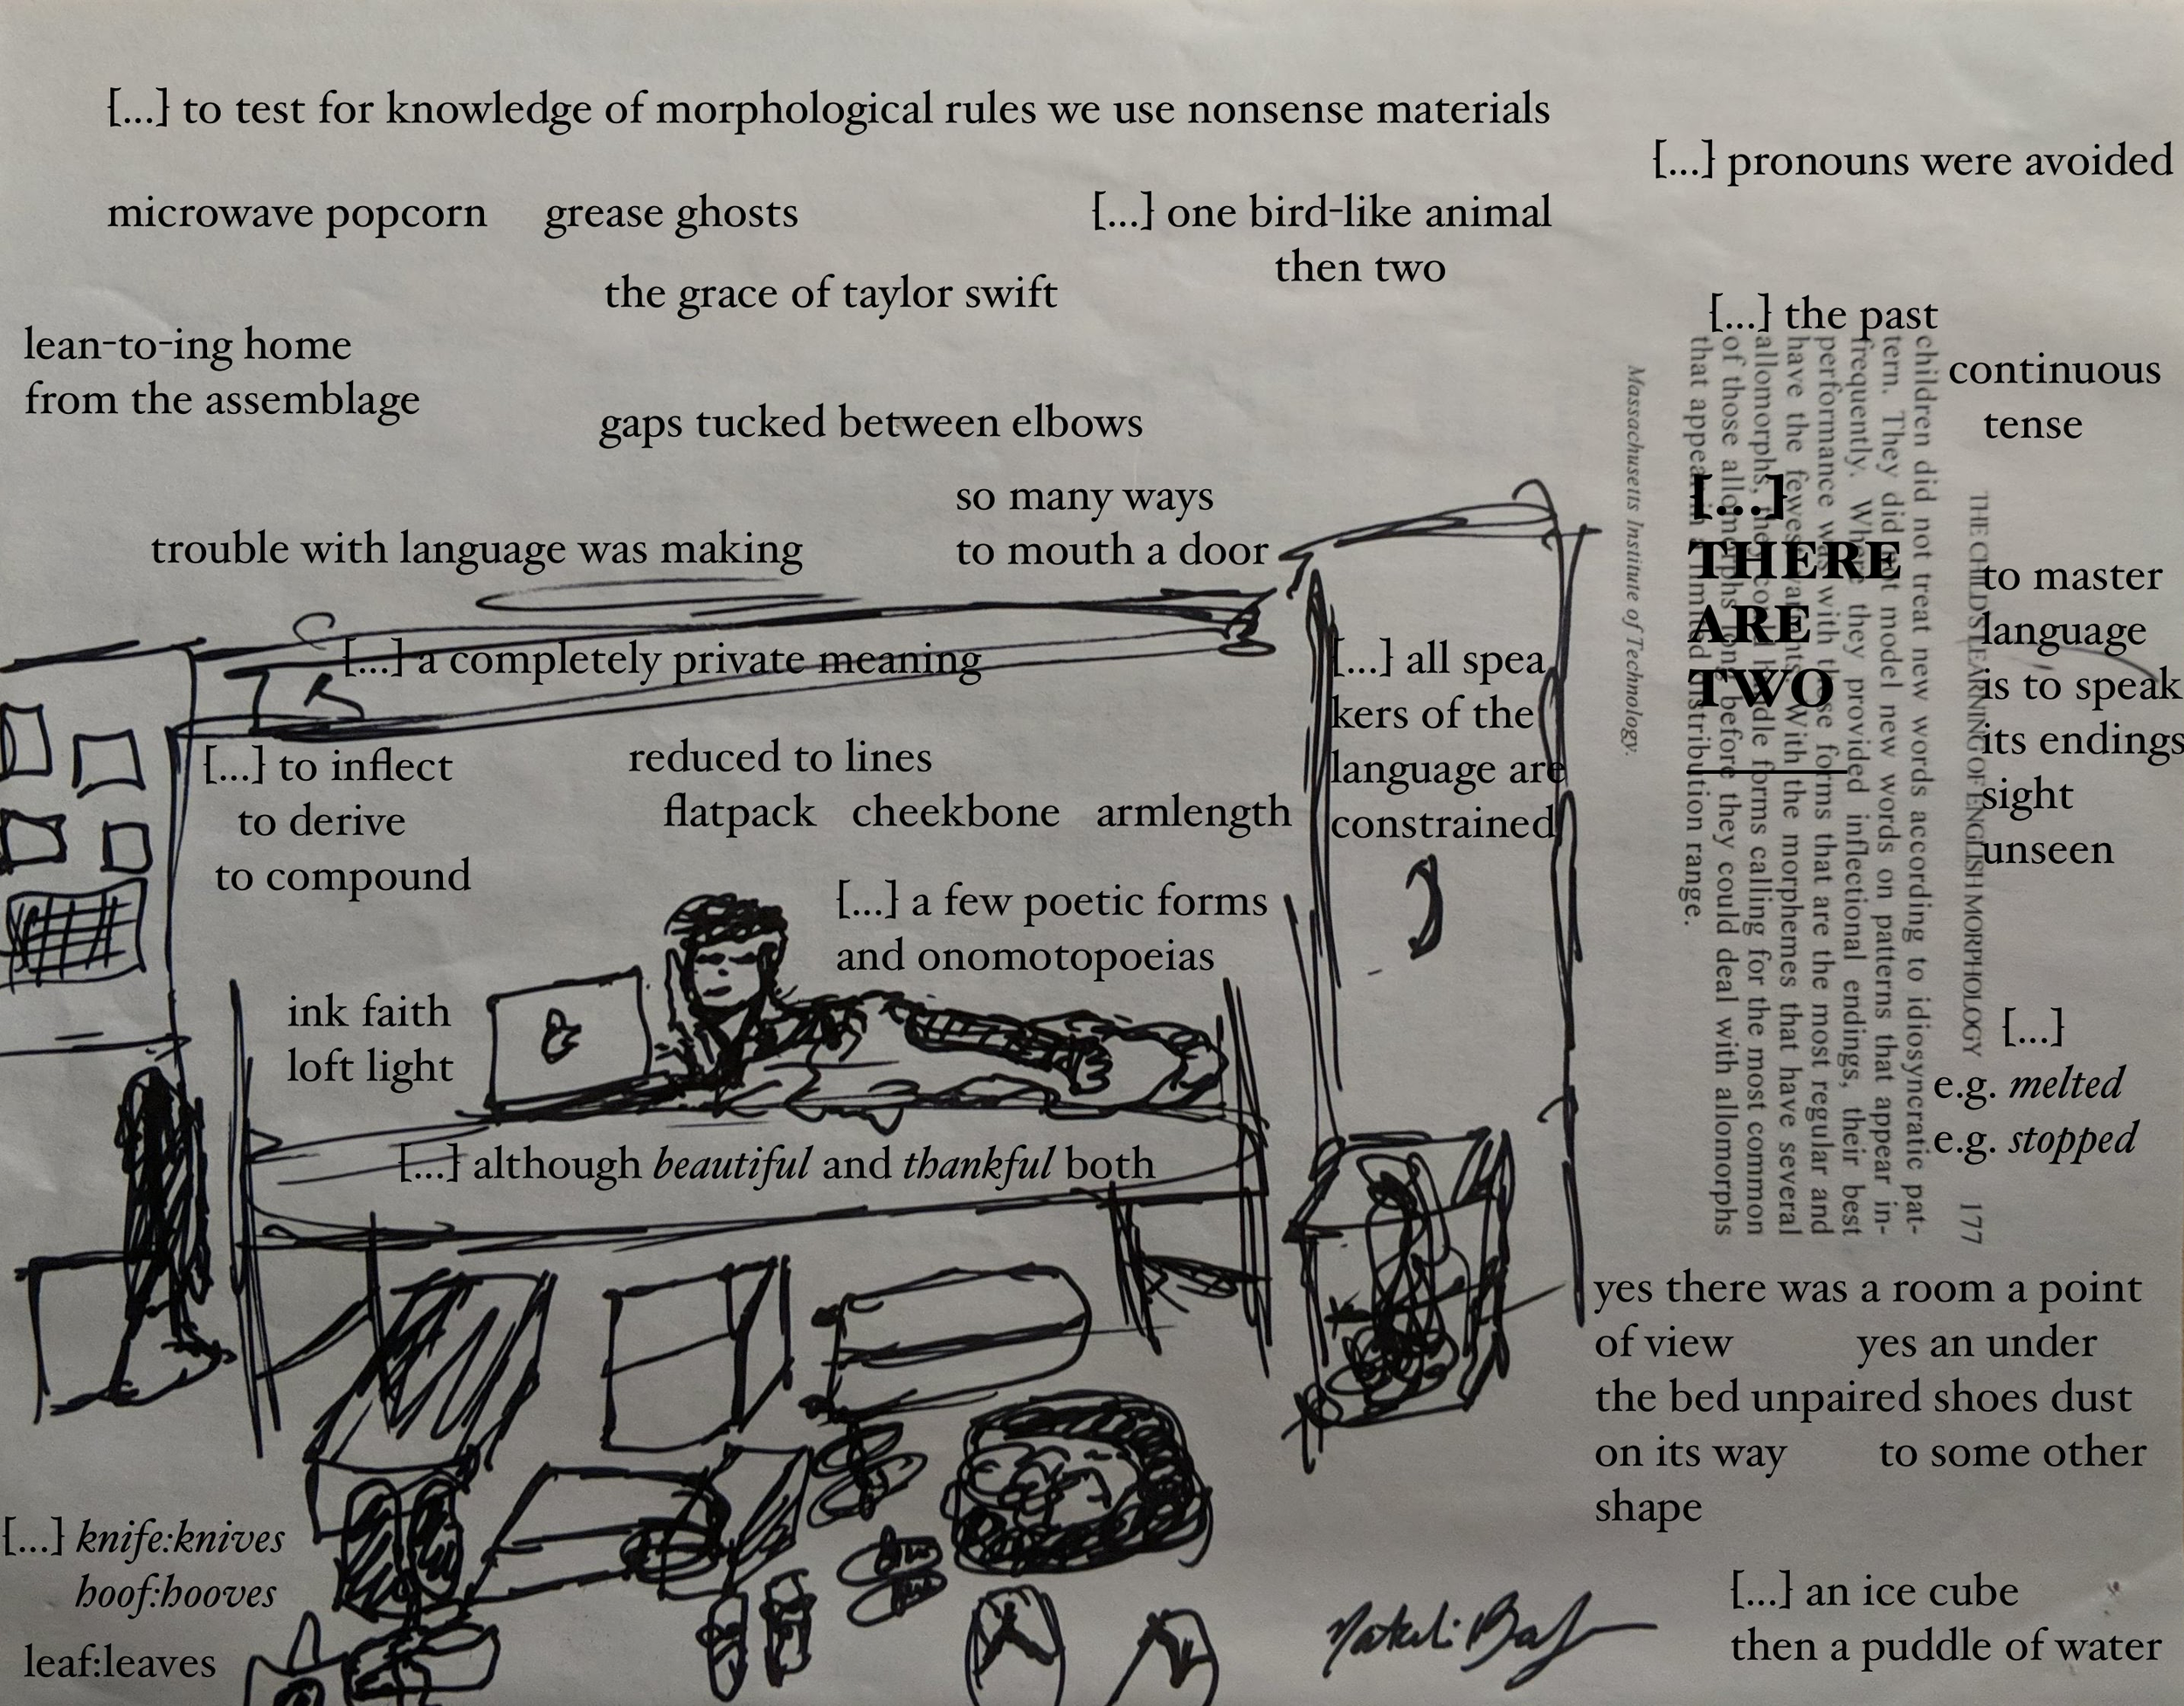 [...] to test for knowledge of morphological rules we use nonsense materials
[...] pronouns were avoided
microwave popcorn grease ghosts
[...] one bird-like animal
then two
the grace of taylor swift
lean-to-ing home
from the assemblage
[...] the past
continuous
tense
gaps tucked between elbows
so many ways
to mouth a door
trouble with language was making
[...]
THERE
ARE
TWO
to master
language
is to speak
its endings
sight
unseen
[...] a completely private meaning
[...] all spea
kers of the
language are
constrained
[...] to inflect
to derive
to compound
reduced to lines
flatpack cheekbone armlength
[...] a few poetic forms
and onomotopoeias
ink faith
loft light
[...] although beautiful and thankful both
THE CHILD'S LEARNING OF ENGLISH MORPHOLOGY 177
children did not treat new words according to idiosyncratic pat-
tern. They did not model new words on patterns that appear in-
frequently. Where they provided inflectional endings, their best
performance was with those forms that are the most regular and
have the fewest variants. With the morphemes that have several
allomorphs, they could handle forms calling for the most common
of those allomorphs long before they could deal with allomorphs
that appear in a limited distribution range.
Massachusetts Institute of Technology.
[...]
e.g. melted
e.g. stopped
yes there was a room a point
of view yes an under
the bed unpaired shoes dust
on its way to some other
shape
[...] knife:knives
hoof:hooves
leaf:leaves
[...] an ice cube
then a puddle of water